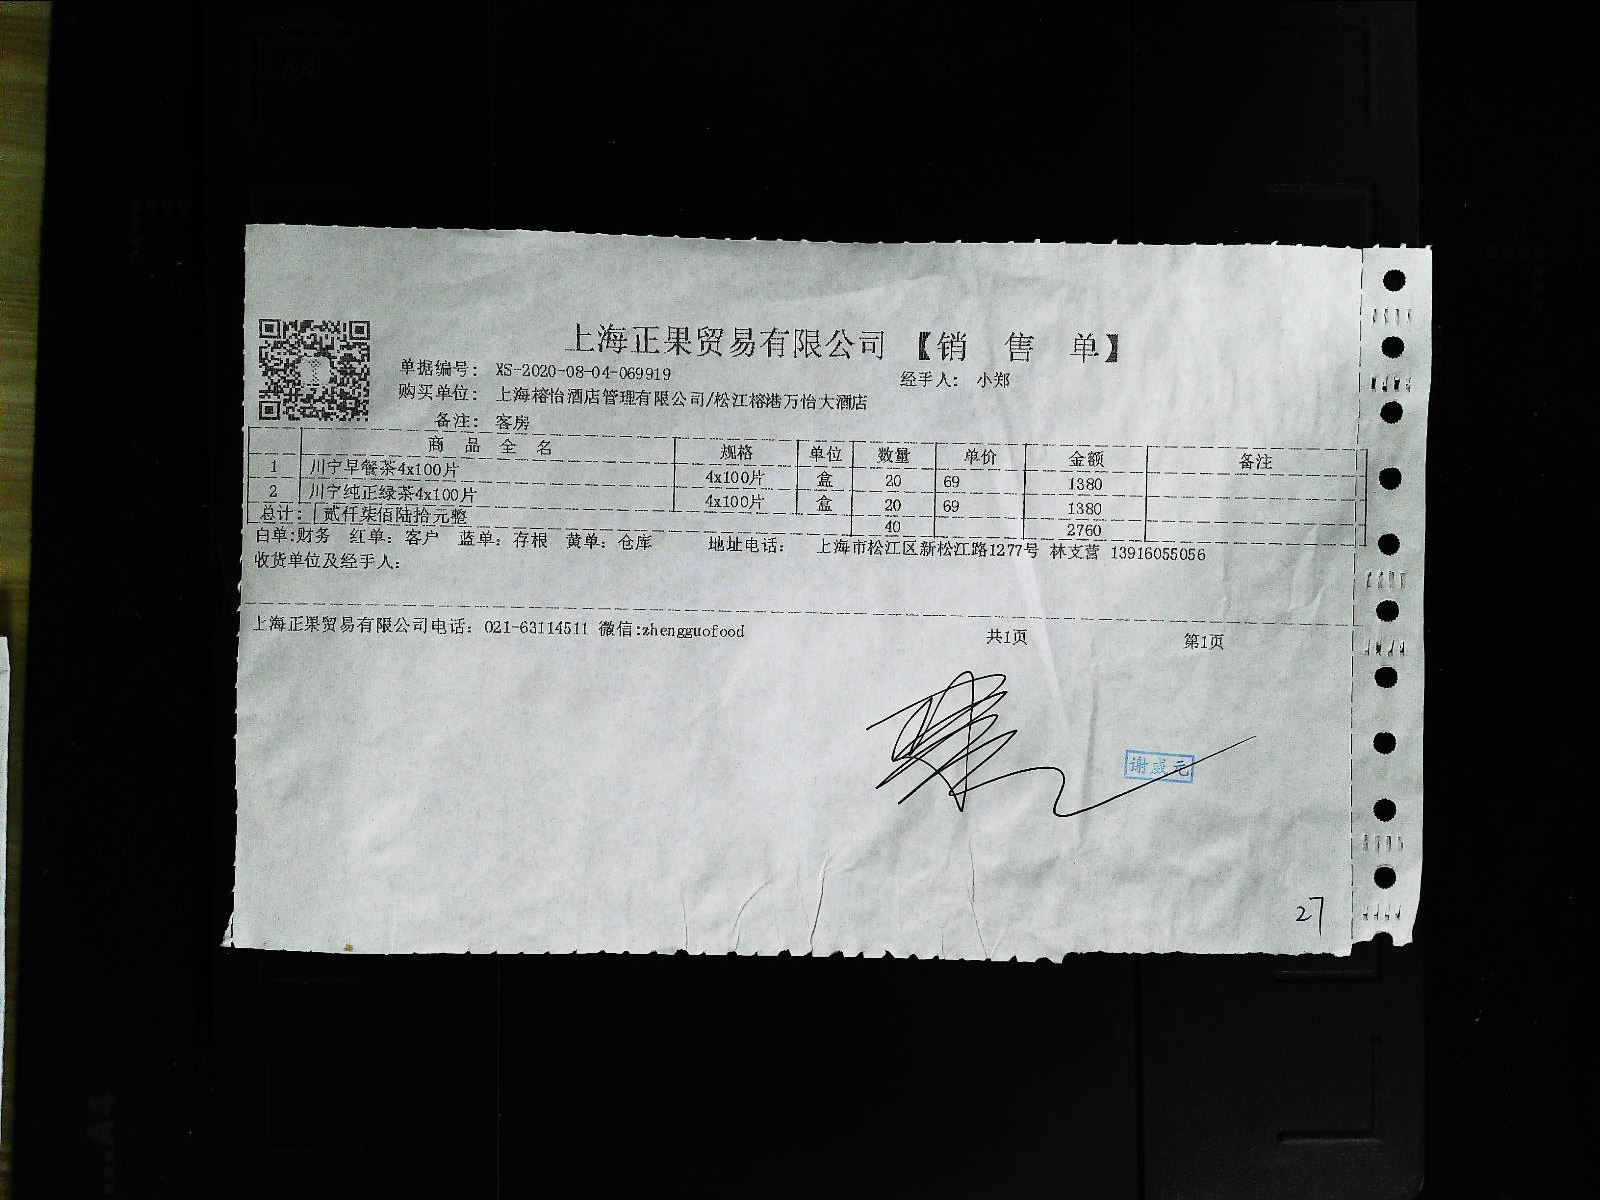 上海正果贸易有限公司 【销 售 单】
单据编号： XS-2020-08-04-069919 经手人： 小郑
购买单位： 上海榕怡酒店管理有限公司/松江榕港万怡大酒店
备注： 客房
商 品 全 名 规格 单位 数量 单价 金额 备注
1 川宁早餐茶4x100片 4x100片 盒 20 69 1380
2 川宁纯正绿茶4x100片 4x100片 盒 20 69 1380
总计： 贰仟柒佰陆拾元整 40 2760
白单:财务 红单：客户 蓝单：存根 黄单：仓库 地址电话： 上海市松江区新松江路1277号 林支营 13916055056
收货单位及经手人：
上海正果贸易有限公司电话：021-63114511 微信:zhengguofood 共1页 第1页
谢 元
27